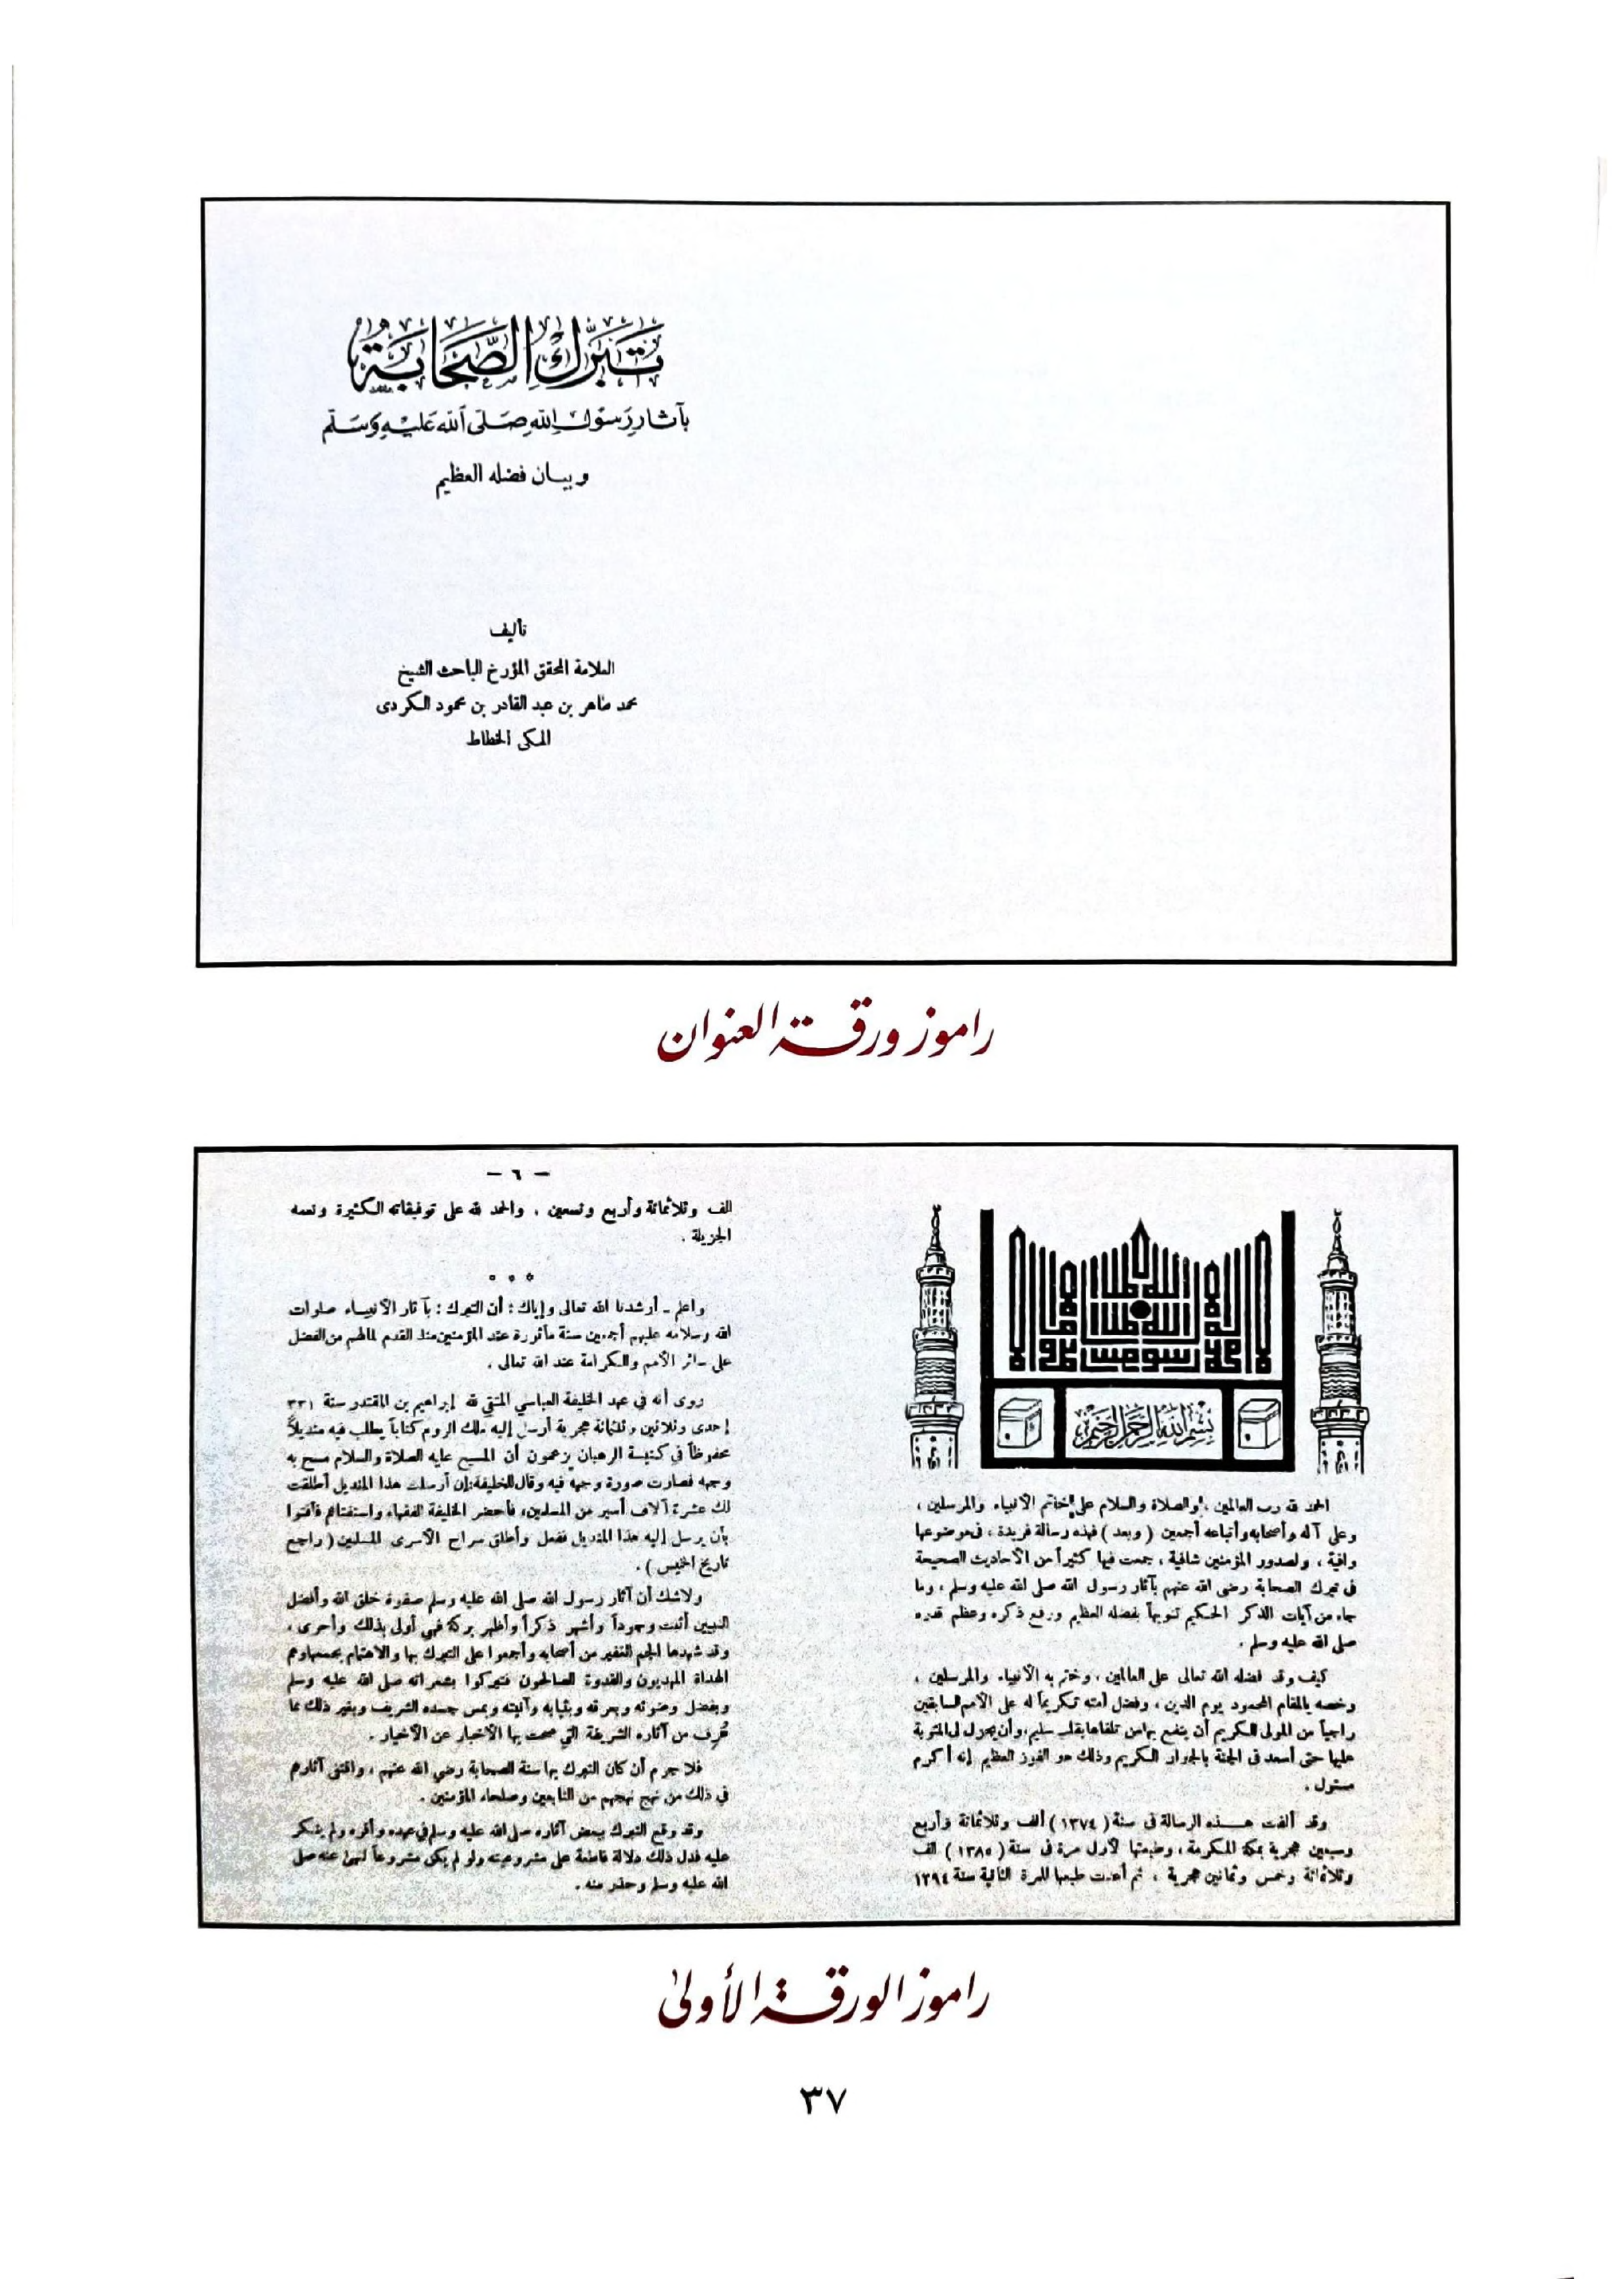 تَبَرُّكُ الصَّحَابَةِ
بآثار رَسُولِ اللهِ صَلَّى اللهُ عَلَيْهِ وَسَلَّمَ
وبيان فضله العظيم
تأليف
العلامة المحقق المؤرخ الباحث الشيخ
محمد طاهر بن عبد القادر بن محمود الكردى
المكى الخطاط
راموز ورقة العنوان
بسم الله الرحمن الرحيم
الحمد لله رب العالمين ، والصلاة والسلام على خاتم الأنبياء والمرسلين ،
وعلى آله وأصحابه وأتباعه أجمعين ( وبعد ) فهذه رسالة فريدة ، فى موضوعها
وافية ، ولصدور المؤمنين شافية ، جمعت فيها كثيراً من الأحاديث الصحيحة
فى تبرك الصحابة رضى الله عنهم بآثار رسول الله صلى الله عليه وسلم ، وما
جاء من آيات الذكر الحكيم تنويهاً بفضله العظيم ورفع ذكره وعظم قدره
صلى الله عليه وسلم .
كيف وقد فضله الله تعالى على العالمين ، وختم به الأنبياء والمرسلين ،
وخصه بالمقام المحمود يوم الدين ، وفضل أمته تكريماً له على الأمم السابقين
راجياً من المولى الكريم أن ينفع بها من تلقاها بقلب سليم ، وأن يجزل لى المثوبة
عليها حتى أسعد فى الجنة بالجوار الكريم وذلك هو الفوز العظيم إنه أكرم
مسئول .
وقد ألفت هذه الرسالة فى سنة ( ١٣٧٤ ) ألف وثلاثمائة وأربع
وسبعين هجرية بمكة المكرمة ، وطبعتها لأول مرة فى سنة ( ١٣٨٥ ) الف
وثلاثمائة وخمس وثمانين هجرية ، ثم أعدت طبعها للمرة الثانية سنة ١٣٩٤
— ٦ —
الف وثلاثمائة وأربع وتسعين . والحمد لله على توفيقاته الكثيرة ونعمه
الجزيلة .
واعلم ـ أرشدنا الله تعالى وإياك : أن التبرك : بآثار الأنبياء صلوات
الله وسلامه عليهم أجمعين سنة مأثورة عند المؤمنين منذ القدم لما لهم من الفضل
على سائر الأمم والكرامة عند الله تعالى .
روى أنه فى عهد الخليفة العباسي المتقي لله إبراهيم بن المقتدر سنة ٣٣١
إحدى وثلاثين وثلثمائة هجرية أرسل إليه ملك الروم كتاباً يطلب فيه منديلاً
محفوظاً في كنيسة الرهبان يزعمون أن المسيح عليه الصلاة والسلام مسح به
وجهه فصارت صورة وجهه فيه وقال للخليفة : إن أرسلت هذا المنديل أطلقت
لك عشرة آلاف أسير من المسلمين، فأحضر الخليفة الفقهاء واستفتاهم فأفتوا
بأن يرسل إليه هذا المنديل ففعل وأطلق سراح الأسرى المسلمين ( راجع
تاريخ الخميس ) .
ولاشك أن آثار رسول الله صلى الله عليه وسلم صفوة خلق الله وأفضل
النبيين أثبت وجوداً وأشهر ذكراً وأظهر بركة فهي أولى بذلك وأحرى ،
وقد شهدها الجم الغفير من أصحابه وأجمعوا على التبرك بها والاهتمام بجمعها وهم
الهداة المهديون والقدوة الصالحون فتبركوا بشعراته صلى الله عليه وسلم
وبفضل وضوئه وبعرقه وبثيابه وآنيته وبمس جسده الشريف وبغير ذلك مما
عُرف من آثاره الشريفة التي صحت بها الأخبار عن الأخيار .
فلا جرم أن كان التبرك بها سنة الصحابة رضي الله عنهم ، واقتفى آثارهم
في ذلك من نهج نهجهم من التابعين وصلحاء المؤمنين .
وقد وقع التبرك ببعض آثاره صلى الله عليه وسلم في عهده وأقره ولم ينكر
عليه فدل ذلك دلالة قاطعة على مشروعيته ولو لم يكن مشروعاً لنهى عنه صلى
الله عليه وسلم وحذر منه .
راموز الورقة الأولى
٣٧